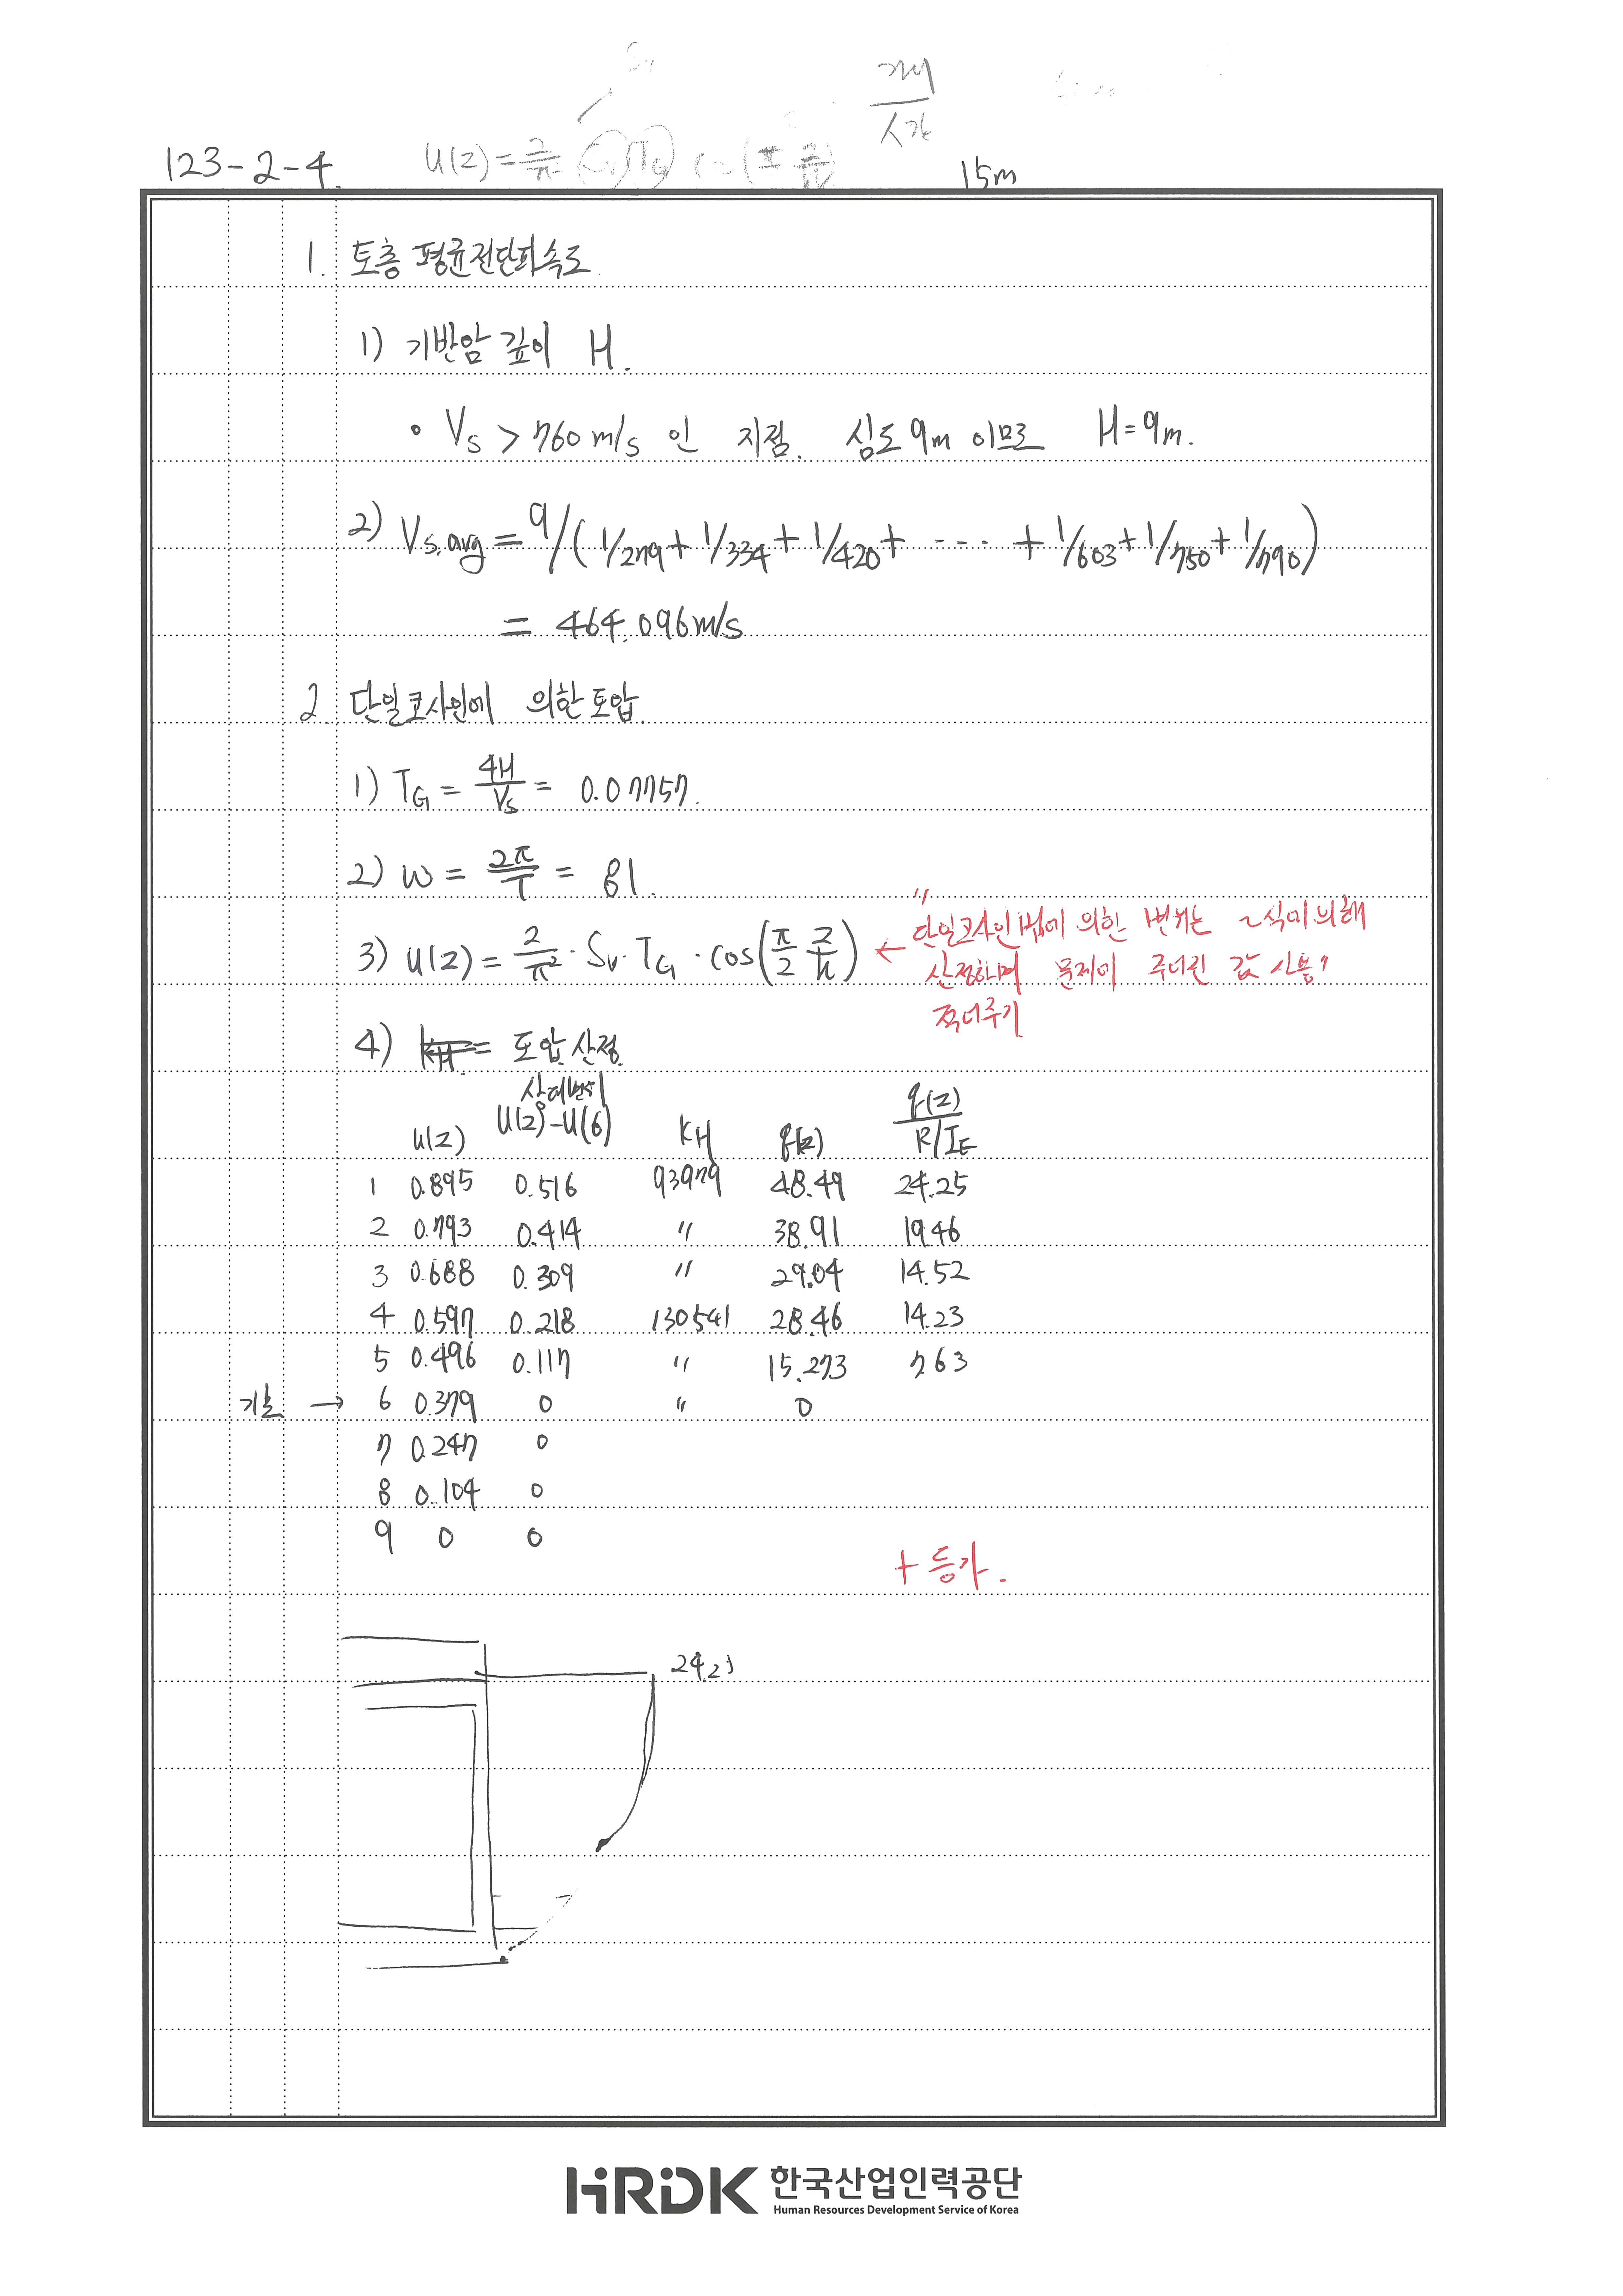 개
시간
123-2-4.
u(z) =
15m
1. 토층 평균전단파속도
1) 기반암 깊이 H.
• Vs > 760 m/s 인 지점. 심도 9m 이므로 H = 9m.
2) Vs.avg = 9/(1/279 + 1/334 + 1/420 + --- + 1/603 + 1/750 + 1/790)
= 464.096 m/s
2. 단일코사인에 의한 토압
1) TG = 4H/Vs = 0.07757.
2) w = 2π/T = 81.
3) u(z) = 2/π² · Sv · TG · cos(π/2 z/h) ← "단일코사인법에 의한 변위는 ~식에 의해
산정하며 문제에 주어진 값 사용"
적어주기
4) KH = 토압 산정.
상대변위
u(z) u(z)-u(6) KH q(z) q(z)/R/IE
1 0.895 0.516 93979 48.49 24.25
2 0.793 0.414 〃 38.91 19.46
3 0.688 0.309 〃 29.04 14.52
4 0.597 0.218 130541 28.46 14.23
5 0.496 0.117 〃 15.273 7.63
기준 → 6 0.379 0 〃 0
7 0.247 0
8 0.104 0
9 0 0
+ 등가.
24.25
HRDK 한국산업인력공단
Human Resources Development Service of Korea